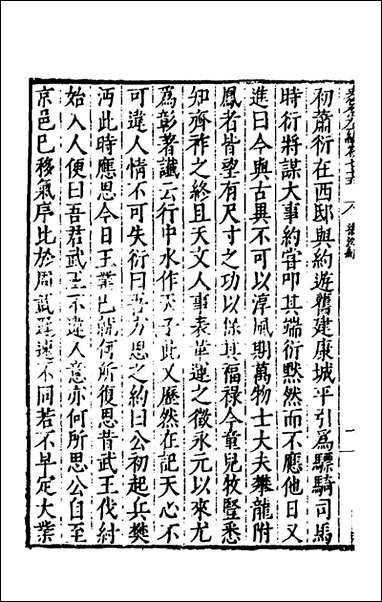 初蕭衍在西邸與約遊舊建康城平引為驃騎司馬
時衍將謀大事約嘗叩其端衍黙然而不應他日又
進曰今與古異不可以淳風期萬物士大夫攀龍附
鳳者皆望有尺寸之功以保其福禄今童兒牧豎悉
知齊祚之終且天文人事表革運之徵永元以來尤
為彰著讖云行中水作天子此又歷然在記天心不
可違人情不可失衍曰吾方思之約曰公初起兵樊
沔此時應思今日王業已就何所復思昔武王伐紂
始入人便曰吾君武王不違人意亦何所思公自至
京邑已移氣序比於周武遲速不同若不早定大業